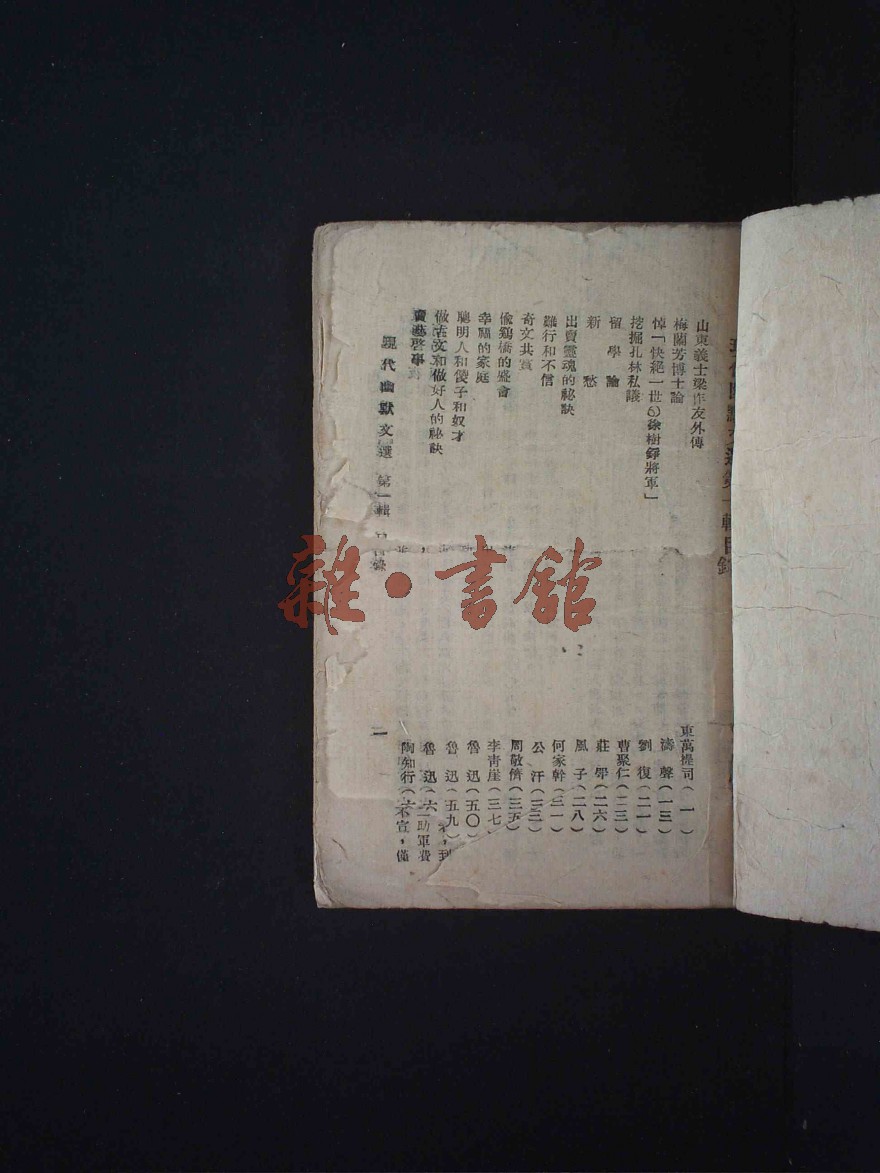 山東義士梁作友外傳
東萬操司(一)
梅蘭芳博士論
濤聲(一三)
悼「快絕一世の徐樹錚將軍」
劉復(二一)
挖掘孔林私議
曹聚仁(二三)
留學論
莊 (二六)
新愁
風子(二八)
出賣靈魂的秘訣
何家幹(三一)
難行和不信
公汗(三三)
奇文共賞
周敬儕(三五)
偷雞橋的盛會
李青崖(三七)
幸福的家庭
魯迅(五〇)
聰明人和傻子和奴才
魯迅(五九)
做古文和做好人的秘訣
魯迅(六
賣藝啓事
陶知行(六
現代幽默文選 第一輯 目錄
二
不,到
助軍費
不宣,僅
雜·書館